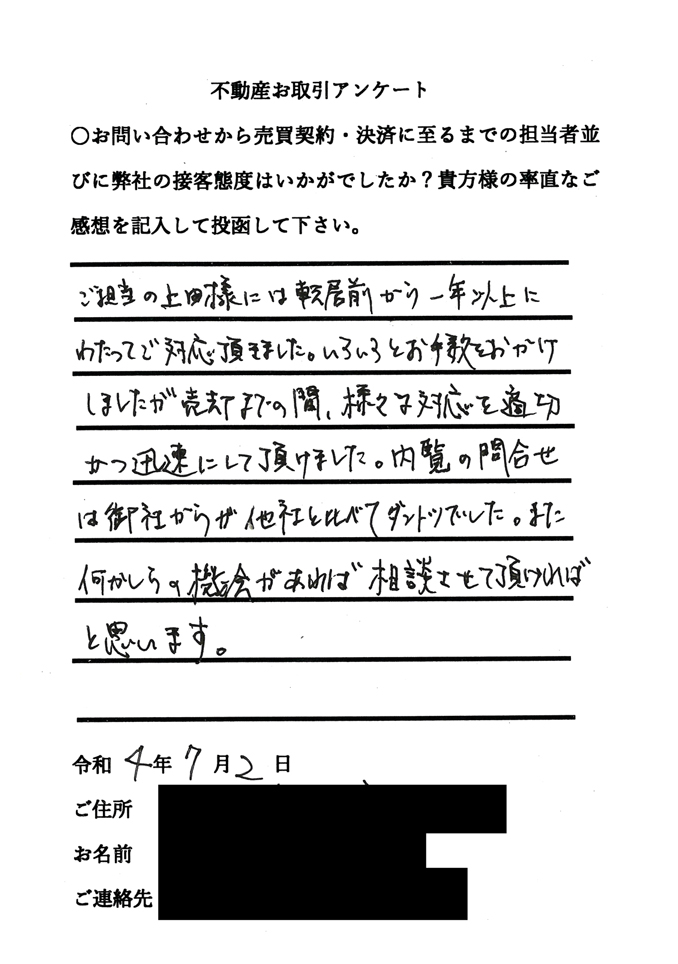 不動産お取引アンケート
〇お問い合わせから売買契約・決済に至るまでの担当者並
びに弊社の接客態度はいかがでしたか？貴方様の率直なご
感想を記入して投函して下さい。
ご担当の上田様には転居前から一年以上に
わたってご対応頂きました。いろいろとお手数をおかけ
しましたが売却までの間、様々な対応を適切
かつ迅速にして頂けました。内覧の問合せ
は御社からが他社と比べてダントツでした。また
何かしらの機会があれば相談させて頂ければ
と思います。
令和 4年 7月 2日
ご住所
お名前
ご連絡先